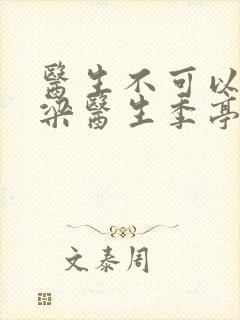 醫生不可以
梁醫生季亭
文泰周